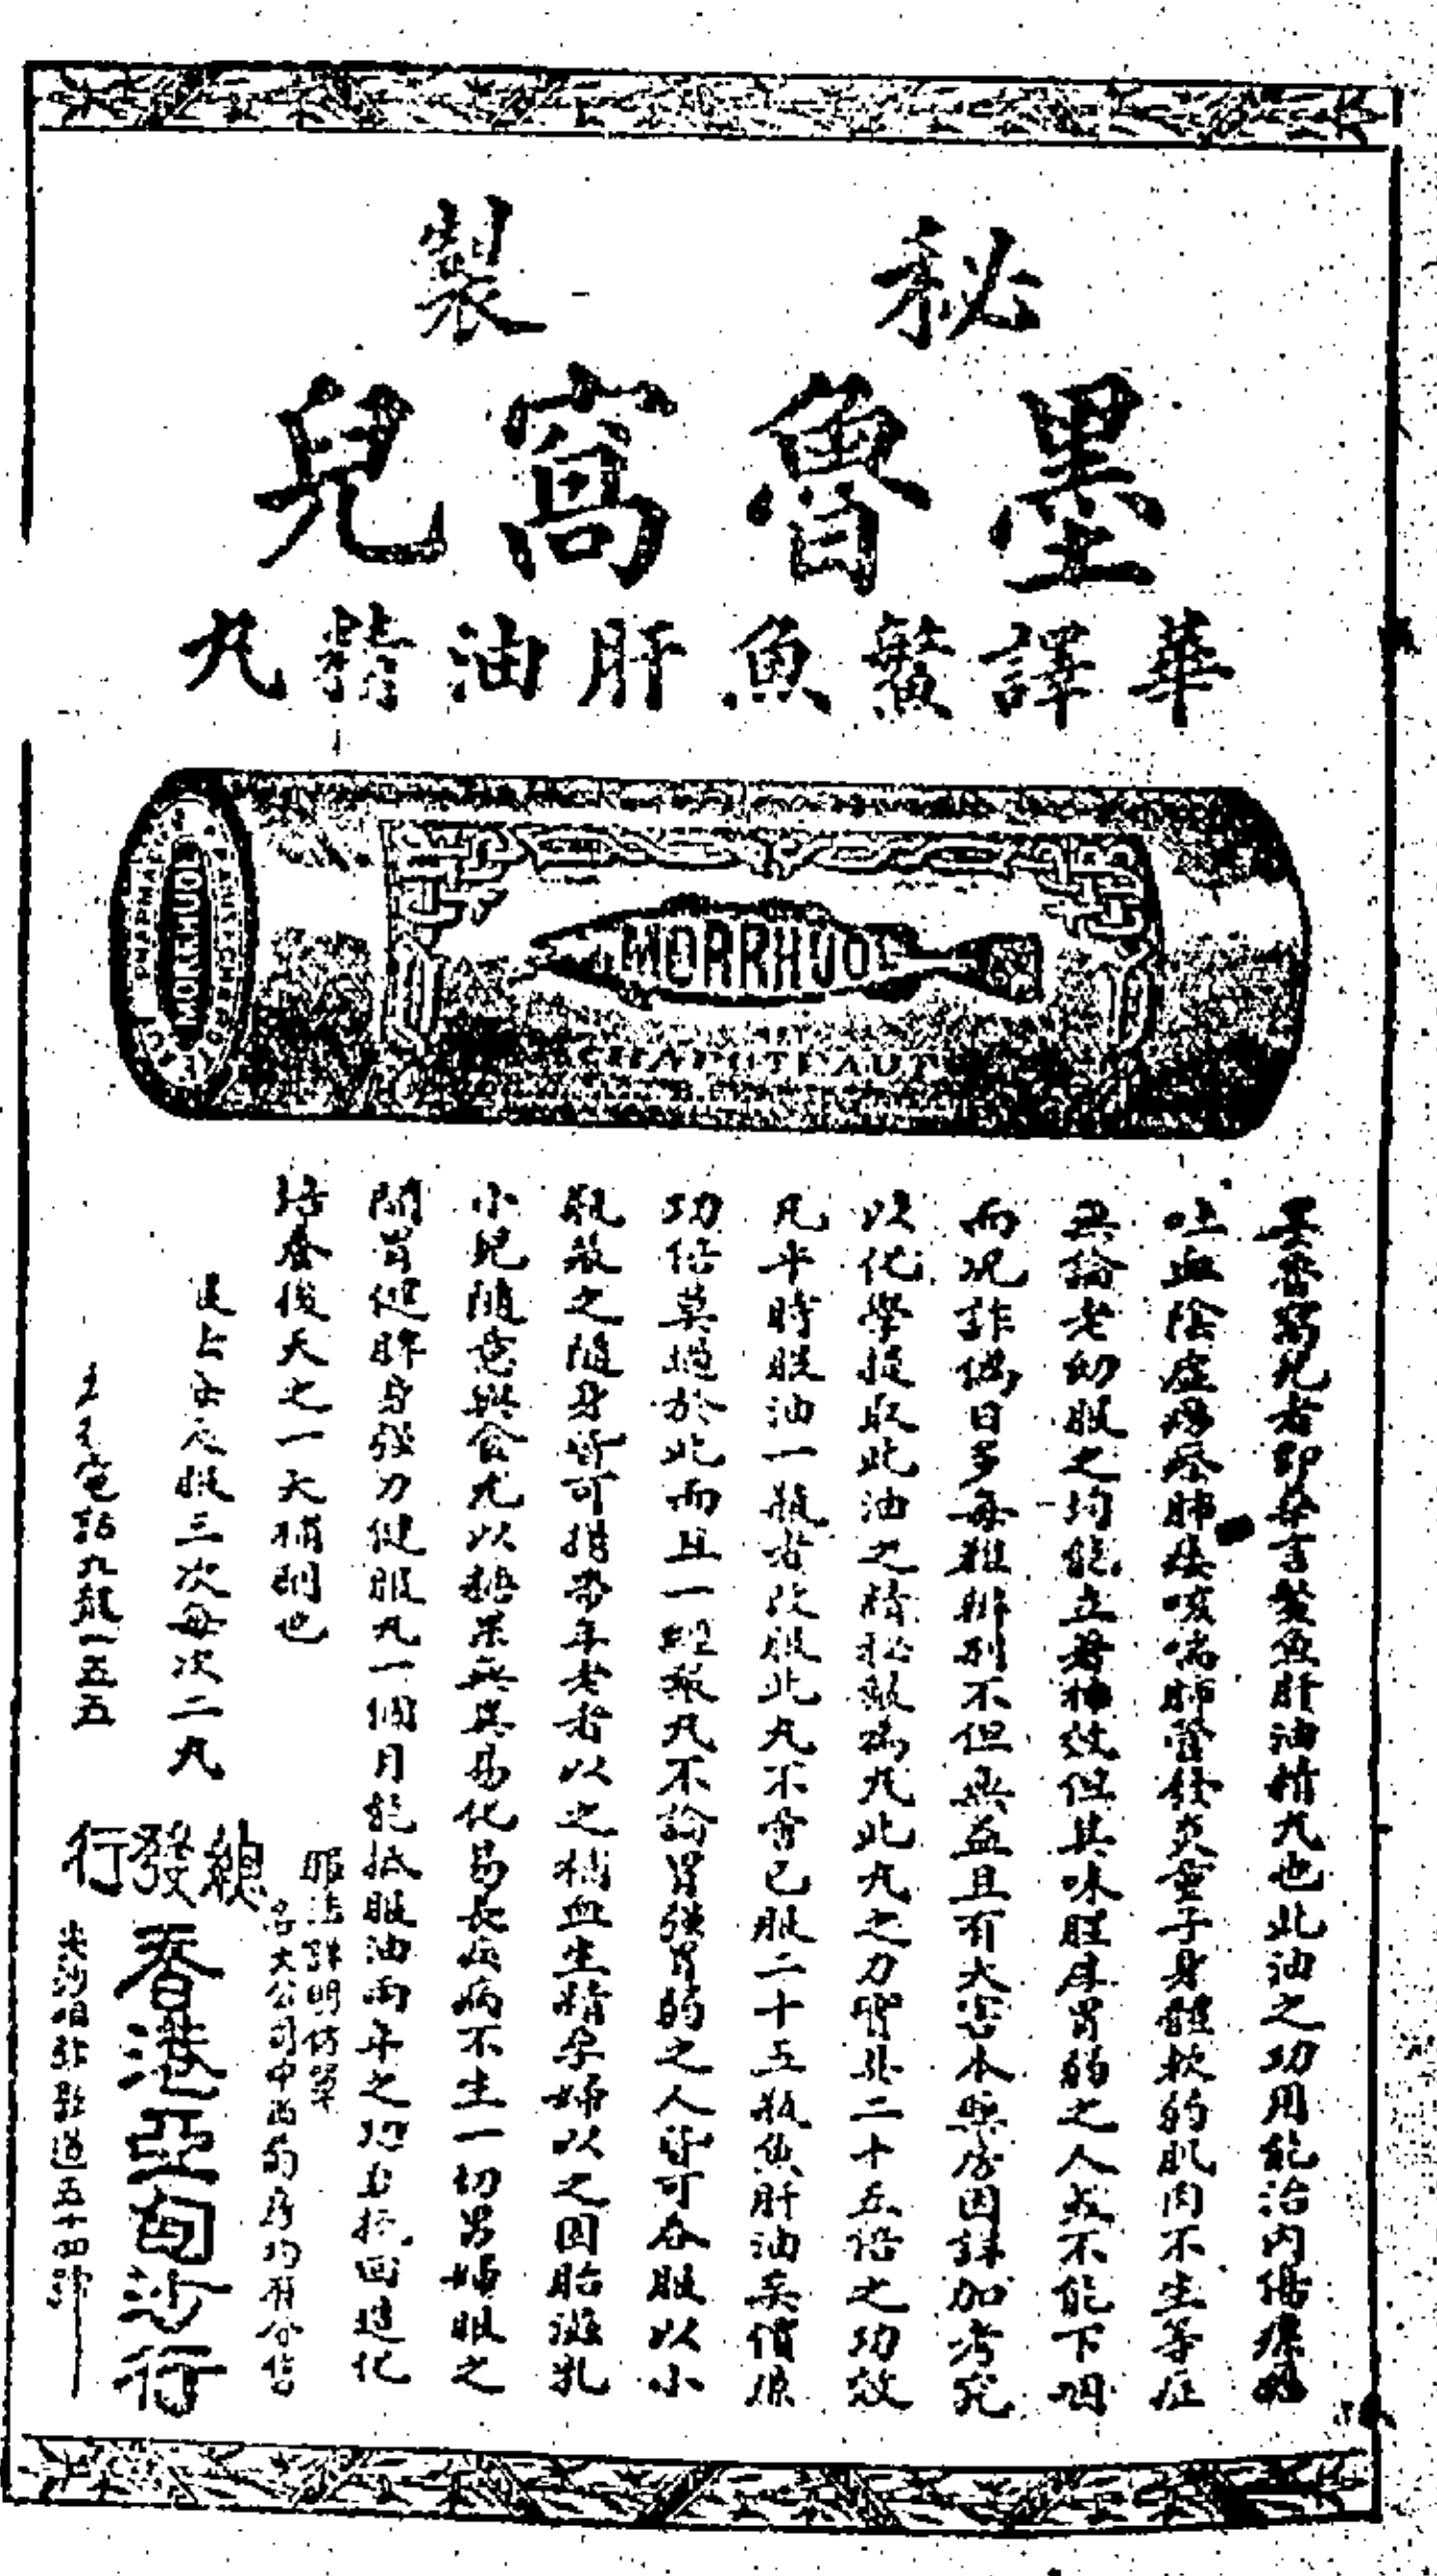 秘製
墨魯窩兒
華譯鰵魚肝油精丸
MORRHUOL
MORRHUOL
CHAPOTEAUT
墨魯窩兒者即華言鰵魚肝油精丸也此油之功用能治內傷
吐血陰虛癆瘵肺痿咳喘肺管發炎童子身體軟弱肌肉不生等症
無論老幼服之均能立著神效但其味腥厚胃弱之人或不能下咽
而况詐偽日多每難辨別不但無益且有大害本藥房因詳加考究
以化學提取此油之精秘製為丸此丸之力實北二十五倍之功效
凡平時服油一瓶者改服此丸不啻已服二十五瓶魚肝油矣價廉
功倍莫過於此而且一經製丸不論胃強胃弱之人皆可吞服以小
瓶裝之隨身皆可携帶年老者以之補血生精孕婦以之固胎滋乳
小兒隨意與食尤以糖果無異易化易長疾病不生一切男婦服之
開胃健脾身強力健服丸一個月能抵服油兩年之功為挽回造化
培養後天之一大補劑也
服三次每次二丸
服法詳明仿單
各大公司中西藥房均有分售
總發行
香港亞甸沙行
尖沙咀 道五十四號
電話九龍一五五